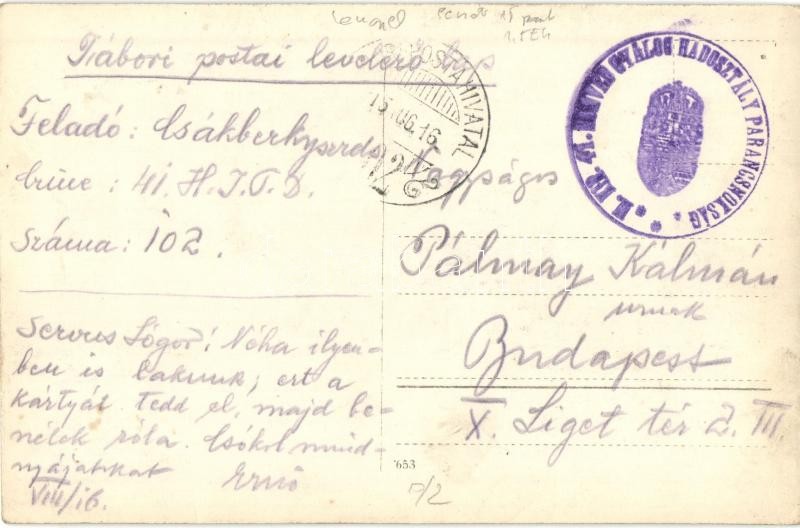 Tábori postai levelező lap
Feladó: Csákberky
címe: 41. H. I. T. D.
Száma: 102.
Servus Sógor! Néha ilyen-
ben is lakunk, ezt a
kártyát tedd el, majd be-
szélek róla. Csókol mind-
nyájatokat Ernő
VIII/16.
POSTAHIVATAL
15. 16.
M. KIR. 41. HONVÉD GYALOG HADOSZTÁLY PARANCSNOKSÁG
Nagyságos
Pálmay Kálmán
urnak
Budapest
X. Liget tér 2. III.
653
7/2